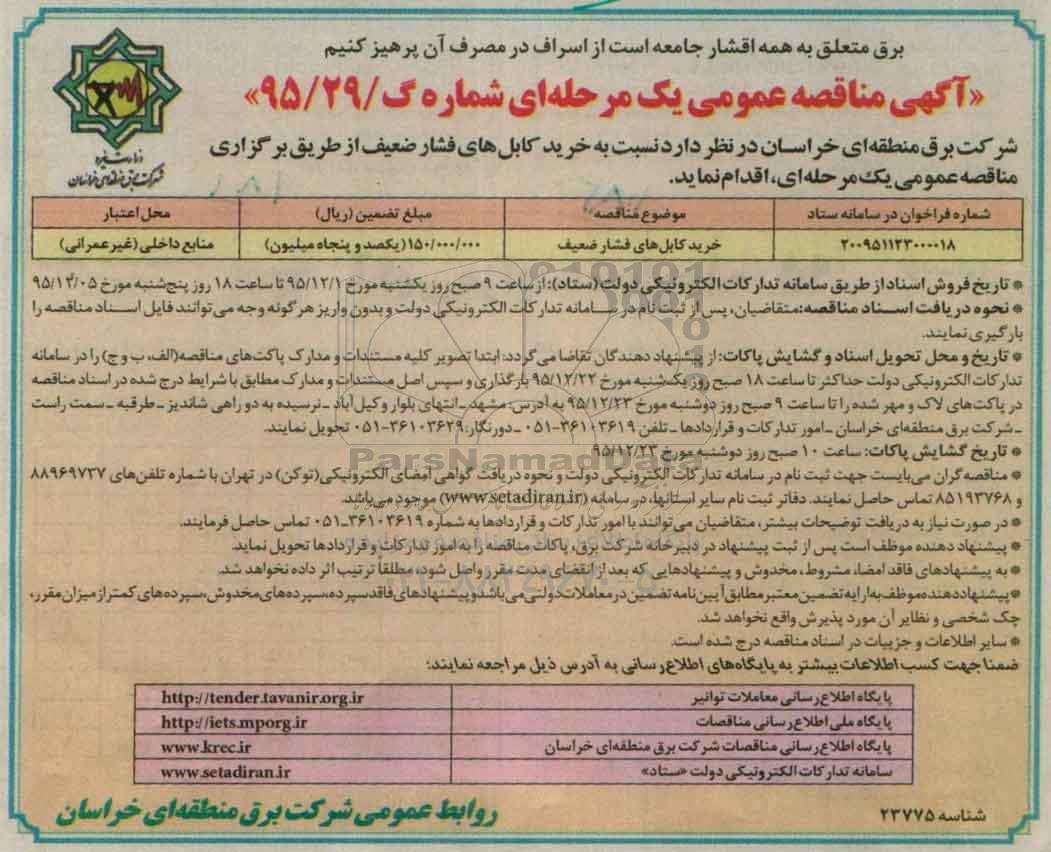 برق متعلق به همه اقشار جامعه است از اسراف در مصرف آن پرهیز کنیم
«آگهی مناقصه عمومی یک مرحله‌ای شماره گ/۹۵/۲۹»
وزارت نیرو
شرکت برق منطقه‌ای خراسان
شرکت برق منطقه‌ای خراسان در نظر دارد نسبت به خرید کابل‌های فشار ضعیف از طریق برگزاری
مناقصه عمومی یک مرحله‌ای، اقدام نماید.
شماره فراخوان در سامانه ستاد موضوع مناقصه مبلغ تضمین (ریال) محل اعتبار
۲۰۰۹۵۱۱۲۳۰۰۰۰۱۸ خرید کابل‌های فشار ضعیف ۱۵۰/۰۰۰/۰۰۰(یکصد و پنجاه میلیون) منابع داخلی (غیر عمرانی)
* تاریخ فروش اسناد از طریق سامانه تدارکات الکترونیکی دولت (ستاد): از ساعت ۹ صبح روز یکشنبه مورخ ۹۵/۱۲/۱ تا ساعت ۱۸ روز پنج‌شنبه مورخ ۹۵/۱۲/۰۵
* نحوه دریافت اسناد مناقصه: متقاضیان، پس از ثبت نام در سامانه تدارکات الکترونیکی دولت و بدون واریز هر گونه وجه می‌توانند فایل اسناد مناقصه را
بارگیری نمایند.
* تاریخ و محل تحویل اسناد و گشایش پاکات: از پیشنهاد دهندگان تقاضا می‌گردد: ابتدا تصویر کلیه مستندات و مدارک پاکت‌های مناقصه(الف، ب و ج) را در سامانه
تدارکات الکترونیکی دولت حداکثر تا ساعت ۱۸ صبح روز یکشنبه مورخ ۹۵/۱۲/۲۲ بارگذاری و سپس اصل مستندات و مدارک مطابق با شرایط درج شده در اسناد مناقصه
در پاکت‌های لاک و مهر شده را تا ساعت ۹ صبح روز دوشنبه مورخ ۹۵/۱۲/۲۳ به آدرس: مشهد ـ انتهای بلوار وکیل آباد ـ نرسیده به دو راهی شاندیز ـ طرقبه ـ سمت راست
ـ شرکت برق منطقه‌ای خراسان ـ امور تدارکات و قراردادها ـ تلفن ۳۶۱۰۳۶۱۹-۰۵۱ ـ دورنگار: ۳۶۱۰۳۶۲۹-۰۵۱ تحویل نمایند.
* تاریخ گشایش پاکات: ساعت ۱۰ صبح روز دوشنبه مورخ ۹۵/۱۲/۲۳
ParsNamadData
* مناقصه گران می‌بایست جهت ثبت نام در سامانه تدارکات الکترونیکی دولت و نحوه دریافت گواهی امضای الکترونیکی(توکن) در تهران با شماره تلفن‌های ۸۸۹۶۹۷۳۷
و ۸۵۱۹۳۷۶۸ تماس حاصل نمایند. دفاتر ثبت نام سایر استانها، در سامانه (www.setadiran.ir) موجود می‌باشد.
* در صورت نیاز به دریافت توضیحات بیشتر، متقاضیان می‌توانند با امور تدارکات و قراردادها به شماره ۳۶۱۰۳۶۱۹-۰۵۱ تماس حاصل فرمایند.
* پیشنهاد دهنده موظف است پس از ثبت پیشنهاد در دبیرخانه شرکت برق، پاکات مناقصه را به امور تدارکات و قراردادها تحویل نماید.
* به پیشنهادهای فاقد امضا، مشروط، مخدوش و پیشنهادهایی که بعد از انقضای مدت مقرر واصل شود، مطلقاً ترتیب اثر داده نخواهد شد.
* پیشنهاد دهنده موظف به ارایه تضمین معتبر مطابق آیین نامه تضمین در معاملات دولتی می‌باشد و پیشنهادهای فاقد سپرده، سپرده‌های مخدوش، سپرده‌های کمتر از میزان مقرر،
چک شخصی و نظایر آن مورد پذیرش واقع نخواهد شد.
* سایر اطلاعات و جزییات در اسناد مناقصه درج شده است.
ضمنا جهت کسب اطلاعات بیشتر به پایگاه‌های اطلاع رسانی به آدرس ذیل مراجعه نمایند:
پایگاه اطلاع رسانی معاملات توانیر http://tender.tavanir.org.ir
پایگاه ملی اطلاع رسانی مناقصات http://iets.mporg.ir
پایگاه اطلاع رسانی مناقصات شرکت برق منطقه‌ای خراسان www.krec.ir
سامانه تدارکات الکترونیکی دولت «ستاد» www.setadiran.ir
شناسه ۲۳۷۷۵
روابط عمومی شرکت برق منطقه‌ای خراسان